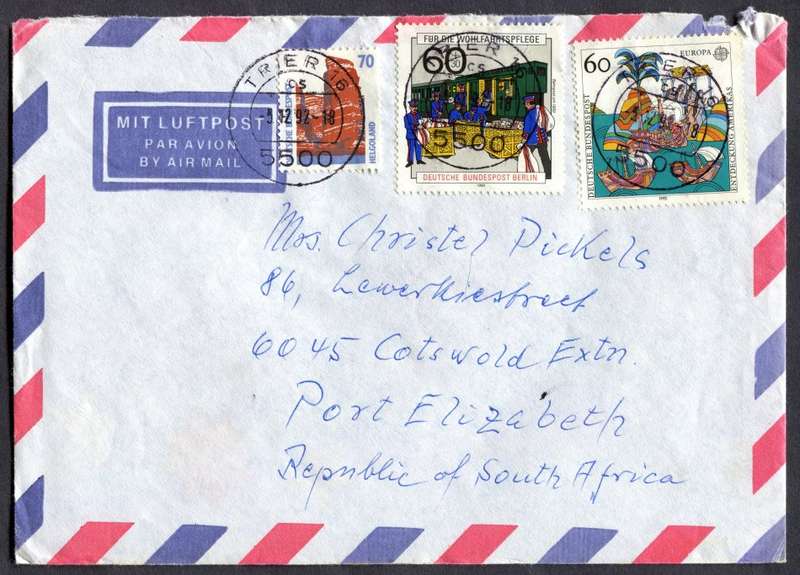 MIT LUFTPOST
PAR AVION
BY AIR MAIL
70
HELGOLAND
TRIER 16
cs
-3.12.92-18
5500
FÜR DIE WOHLFAHRTSPFLEGE
60
+30
DEUTSCHE BUNDESPOST BERLIN
60
EUROPA
DEUTSCHE BUNDESPOST
ENTDECKUNG AMERIKAS
1992
5500
Mrs. Christel Pickels
86, Lewerkiestreet
6045 Cotswold Extn.
Port Elizabeth
Republic of South Africa